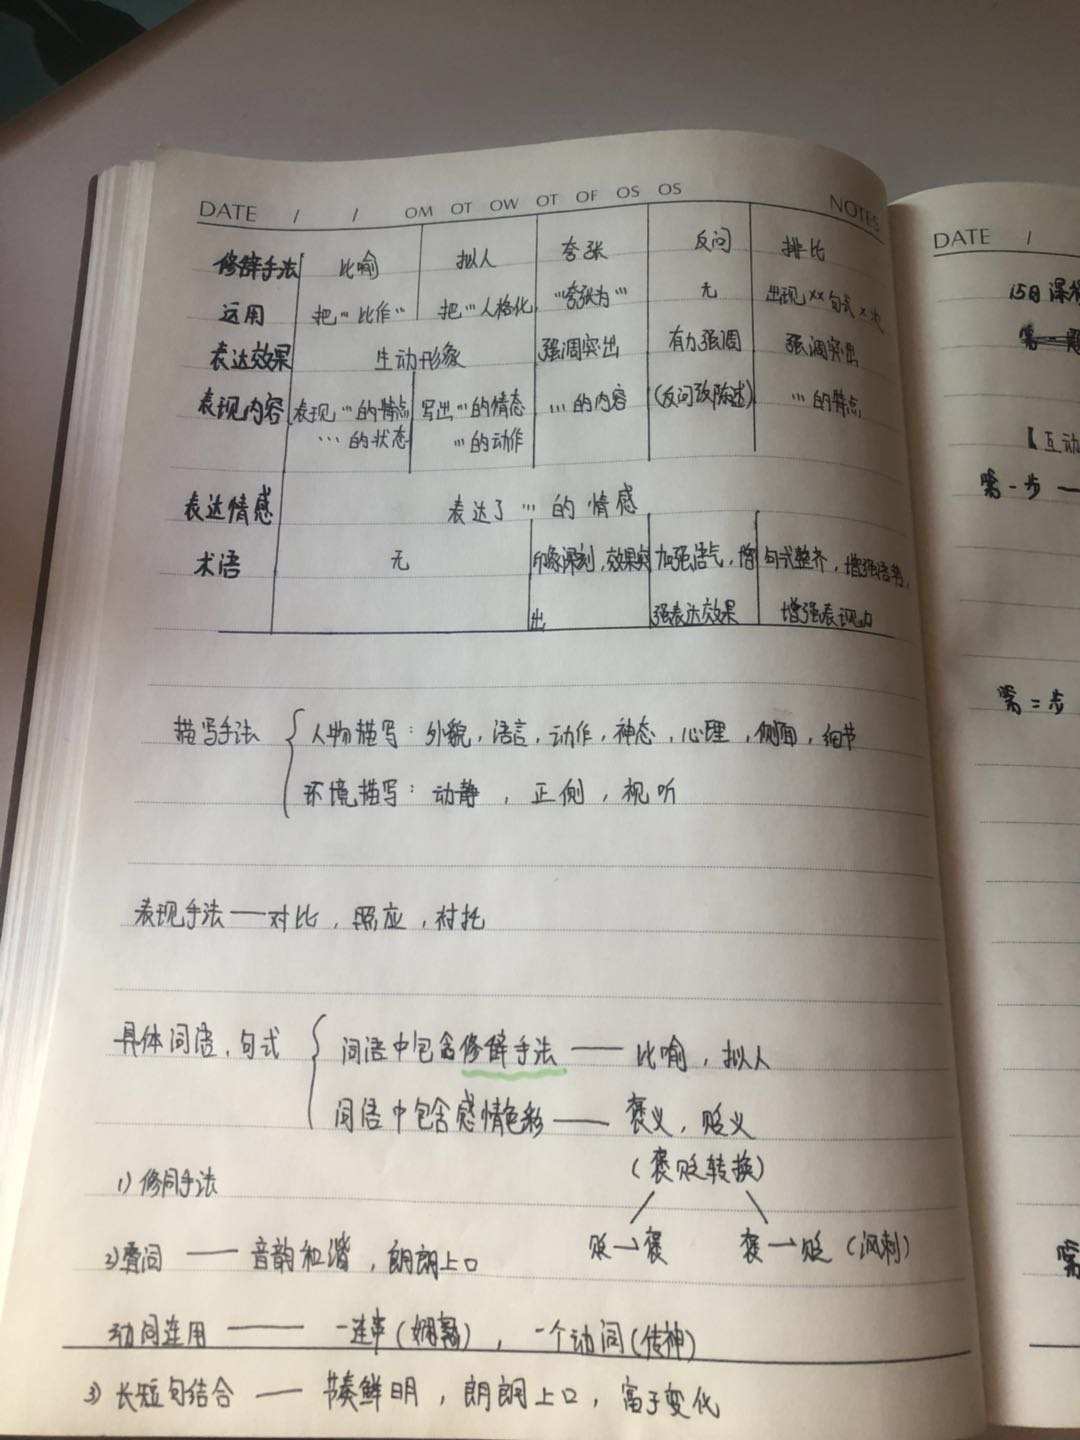 DATE / / OM OT OW OT OF OS OS NOTES
修辞手法 比喻 拟人 夸张 反问 排比
运用 把…比作… 把…人格化 …夸张为… 无 出现××句式×次
表达效果 生动形象 强调突出 有力强调 强调突出
表现内容 表现…的特点 写出…的情态 …的内容 (反问改陈述) …的特点
…的状态 …的动作
表达情感 表达了…的情感
术语 无 印象深刻,效果突 加强语气,增 句式整齐,增强语势,
出 强表达效果 增强表现力
描写手法 人物描写:外貌,语言,动作,神态,心理,侧面,细节
环境描写:动静,正侧,视听
表现手法——对比,照应,衬托
具体词语,句式 词语中包含修辞手法——比喻,拟人
词语中包含感情色彩——褒义,贬义
(褒贬转换)
1)修词手法
贬→褒 褒→贬(讽刺)
2)叠词——音韵和谐,朗朗上口
动词连用——一连串(娴熟),一个动词(传神)
3)长短句结合——节奏鲜明,朗朗上口,富于变化
DATE /
15日课
【互动
第一步——
第二步
第